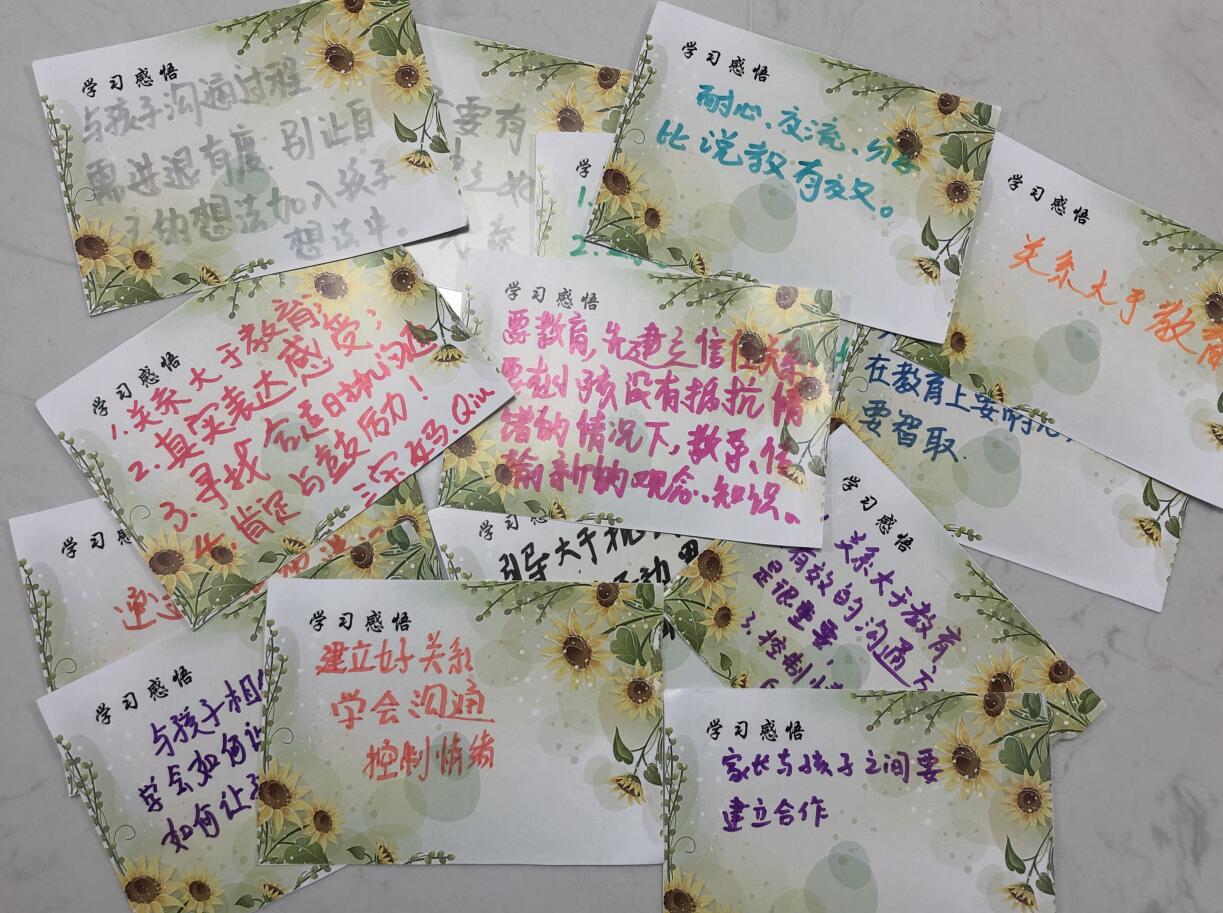 学习感悟
与孩子沟通过程
需进退有度 别让自
己的想法加入孩子
想法中。
要有
学习感悟
耐心、交流、分享
比说教有效。
学
1.
2.
学习感悟
关系大于教育
在教育上要
要智取.
学习感悟
1.关系大于教育;
2.真实表达感受;
3.寻找合适时机沟通
4.肯定与鼓励力!
学习感悟
要教育,先建立信任关系
要在小孩没有抵抗情
绪的情况下,教导、传
输新的观念、知识。
学习感
学习感
引导大于
学习感悟
关系大于教育、
有效的沟通
是很重要,
3.控制
学习感悟
与孩子相
学会如何
如何让
学习感悟
建立好关系
学会沟通
控制情绪
学习感悟
家长与孩子之间要
建立合作